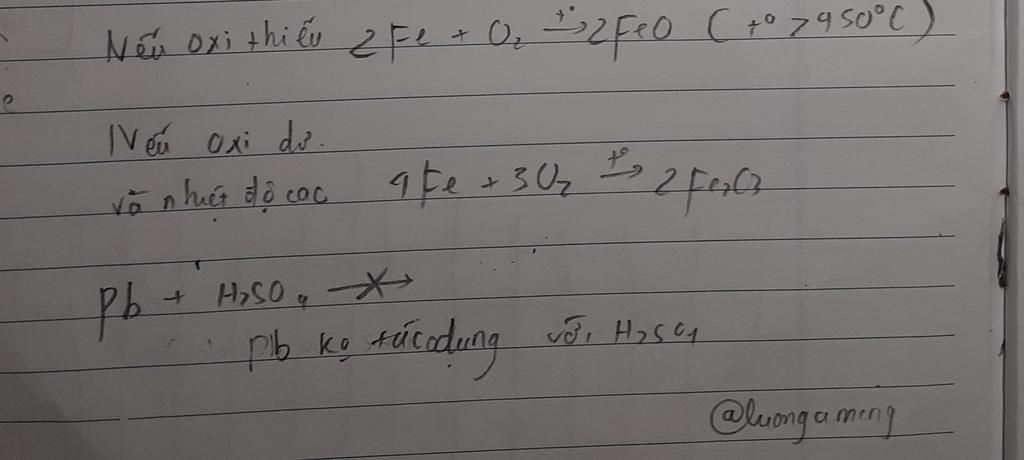 Nếu oxi thiếu 2Fe + O₂ →t° 2FeO (t° > 950°C)
Nếu oxi dư.
và nhiệt độ cao 4Fe + 3O₂ →t° 2Fe₂O₃
Pb + H₂SO₄ -x->
Pb ko tác dụng với H₂SO₄
@luongaming